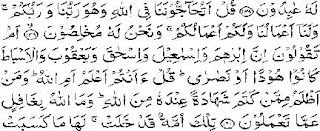 لَهُ عَٰبِدُونَ ۝ قُلْ أَتُحَآجُّونَنَا فِى ٱللَّهِ وَهُوَ رَبُّنَا وَرَبُّكُمْ
وَلَنَآ أَعْمَٰلُنَا وَلَكُمْ أَعْمَٰلُكُمْ وَنَحْنُ لَهُۥ مُخْلِصُونَ ۝ أَمْ
تَقُولُونَ إِنَّ إِبْرَٰهِـۧمَ وَإِسْمَٰعِيلَ وَإِسْحَٰقَ وَيَعْقُوبَ وَٱلْأَسْبَاطَ
كَانُوا۟ هُودًا أَوْ نَصَٰرَىٰ ۗ قُلْ ءَأَنتُمْ أَعْلَمُ أَمِ ٱللَّهُ ۗ وَمَنْ
أَظْلَمُ مِمَّن كَتَمَ شَهَٰدَةً عِندَهُۥ مِنَ ٱللَّهِ ۗ وَمَا ٱللَّهُ بِغَٰفِلٍ
عَمَّا تَعْمَلُونَ ۝ تِلْكَ أُمَّةٌ قَدْ خَلَتْ ۖ لَهَا مَا كَسَبَتْ